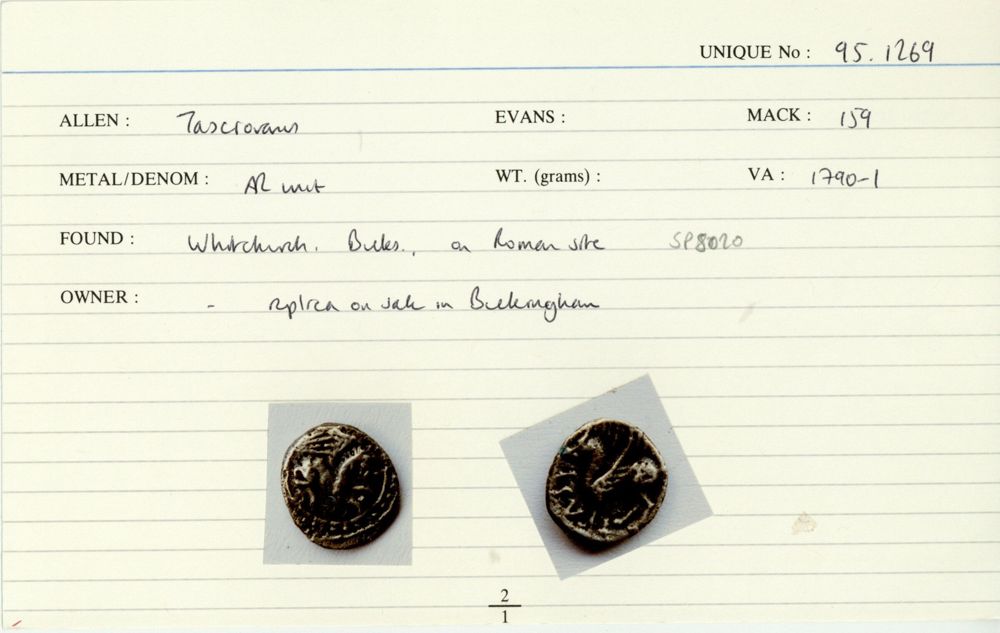 UNIQUE No : 95.1269
ALLEN : Tasciovanus EVANS : MACK : 159
METAL/DENOM : AR unit WT. (grams) : VA : 1790-1
FOUND : Whitchurch. Bucks., on Roman site SP8020
OWNER : - replica on sale in Buckingham
2
1